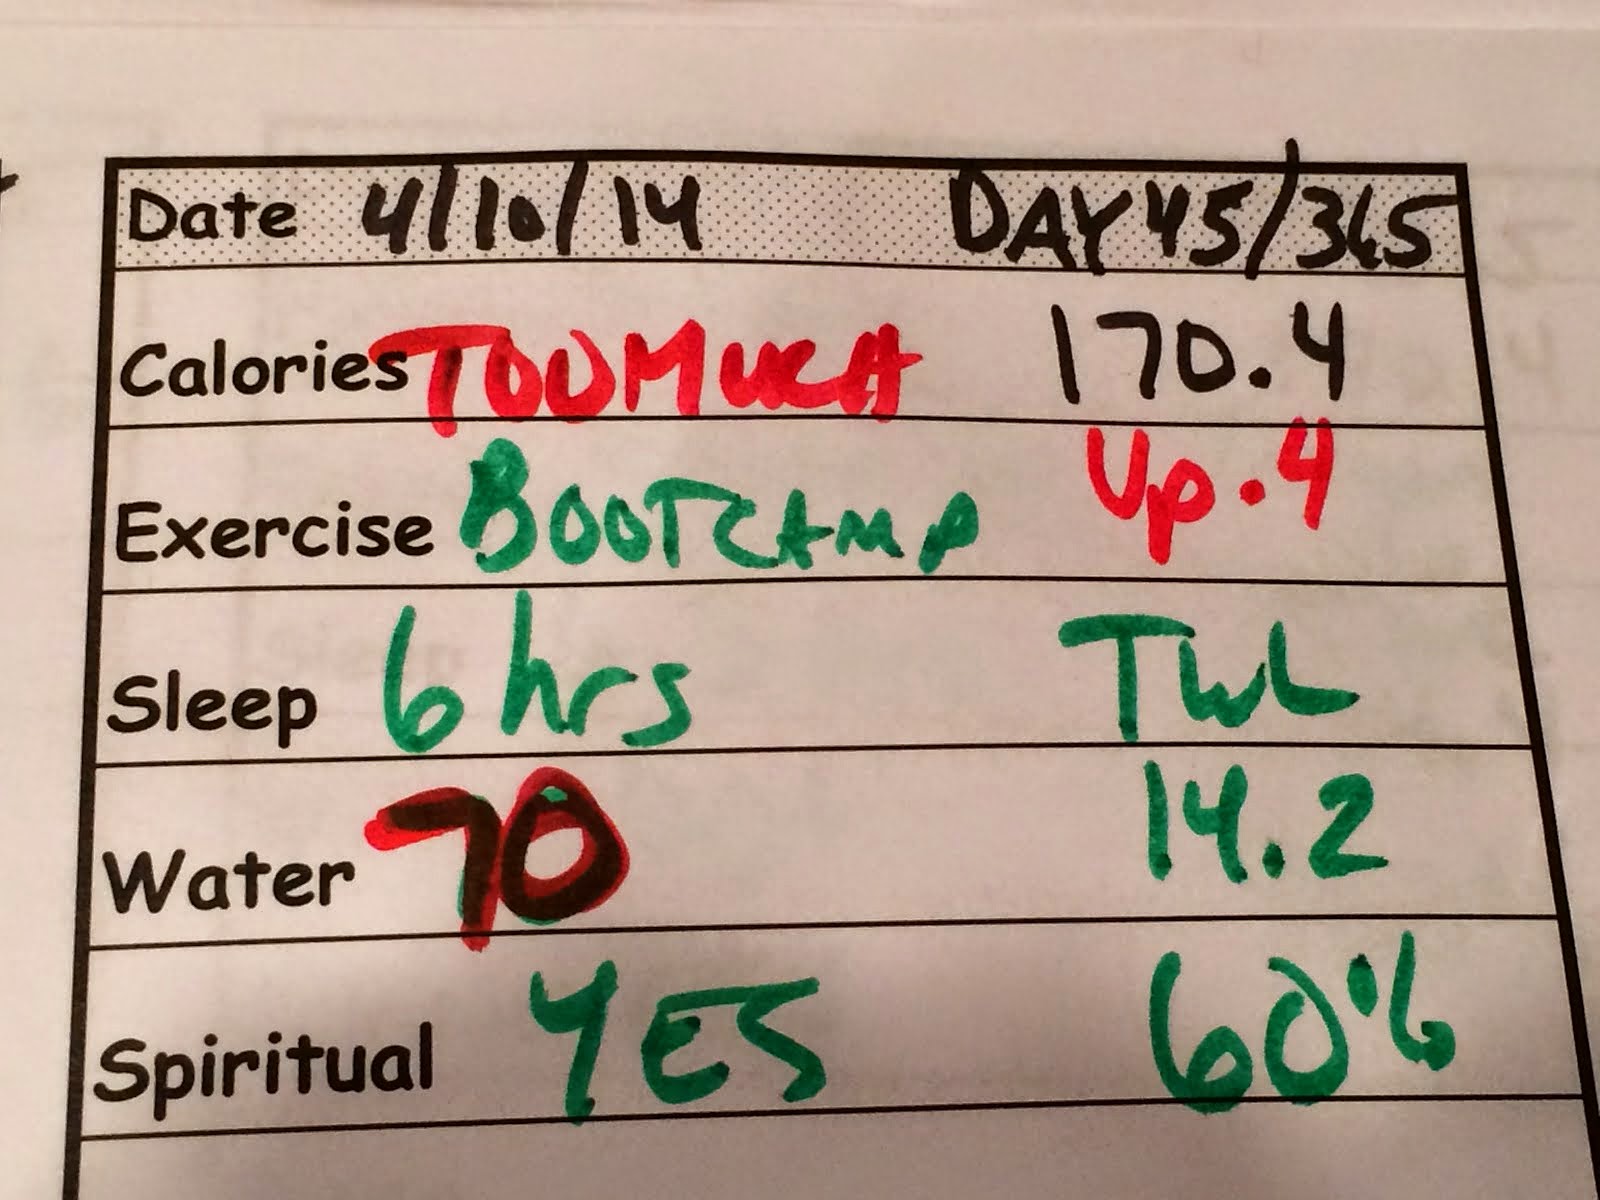 Date 4/10/14 DAY 45/365
Calories TOO MUCH 170.4
Exercise BOOTCAMP Up .4
Sleep 6 hrs TWL
Water 70 14.2
Spiritual YES 60%